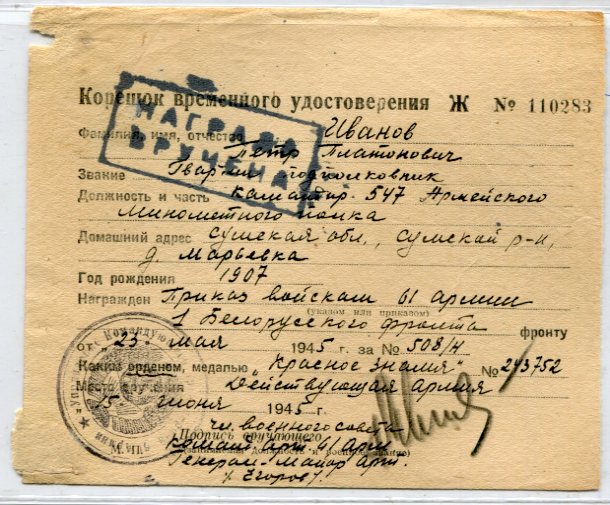 Корешок временного удостоверения Ж № 110283
НАГРАДА
ВРУЧЕНА
Фамилия, имя, отчество Иванов
Петр Платонович
Звание Гвардии подполковник
Должность и часть командир 547 Армейского
Минометного полка
Домашний адрес Сумская обл., Сумской р-н,
д. Марьевка
Год рождения 1907
Награжден Приказ войскам 61 армии
(указом или приказом)
1 Белорусского фронта фронту
от 23 мая 1945 г. за № 508/н
Каким орденом, медалью "Красное знамя" № 243752
Место вручения Действующая армия
15 июня 1945 г.
чл. военного совета
Подпись вручающего
Арт 61 Арм
(занимаемая должность и военное звание)
Генерал-Майор Арт.
/Егоров/